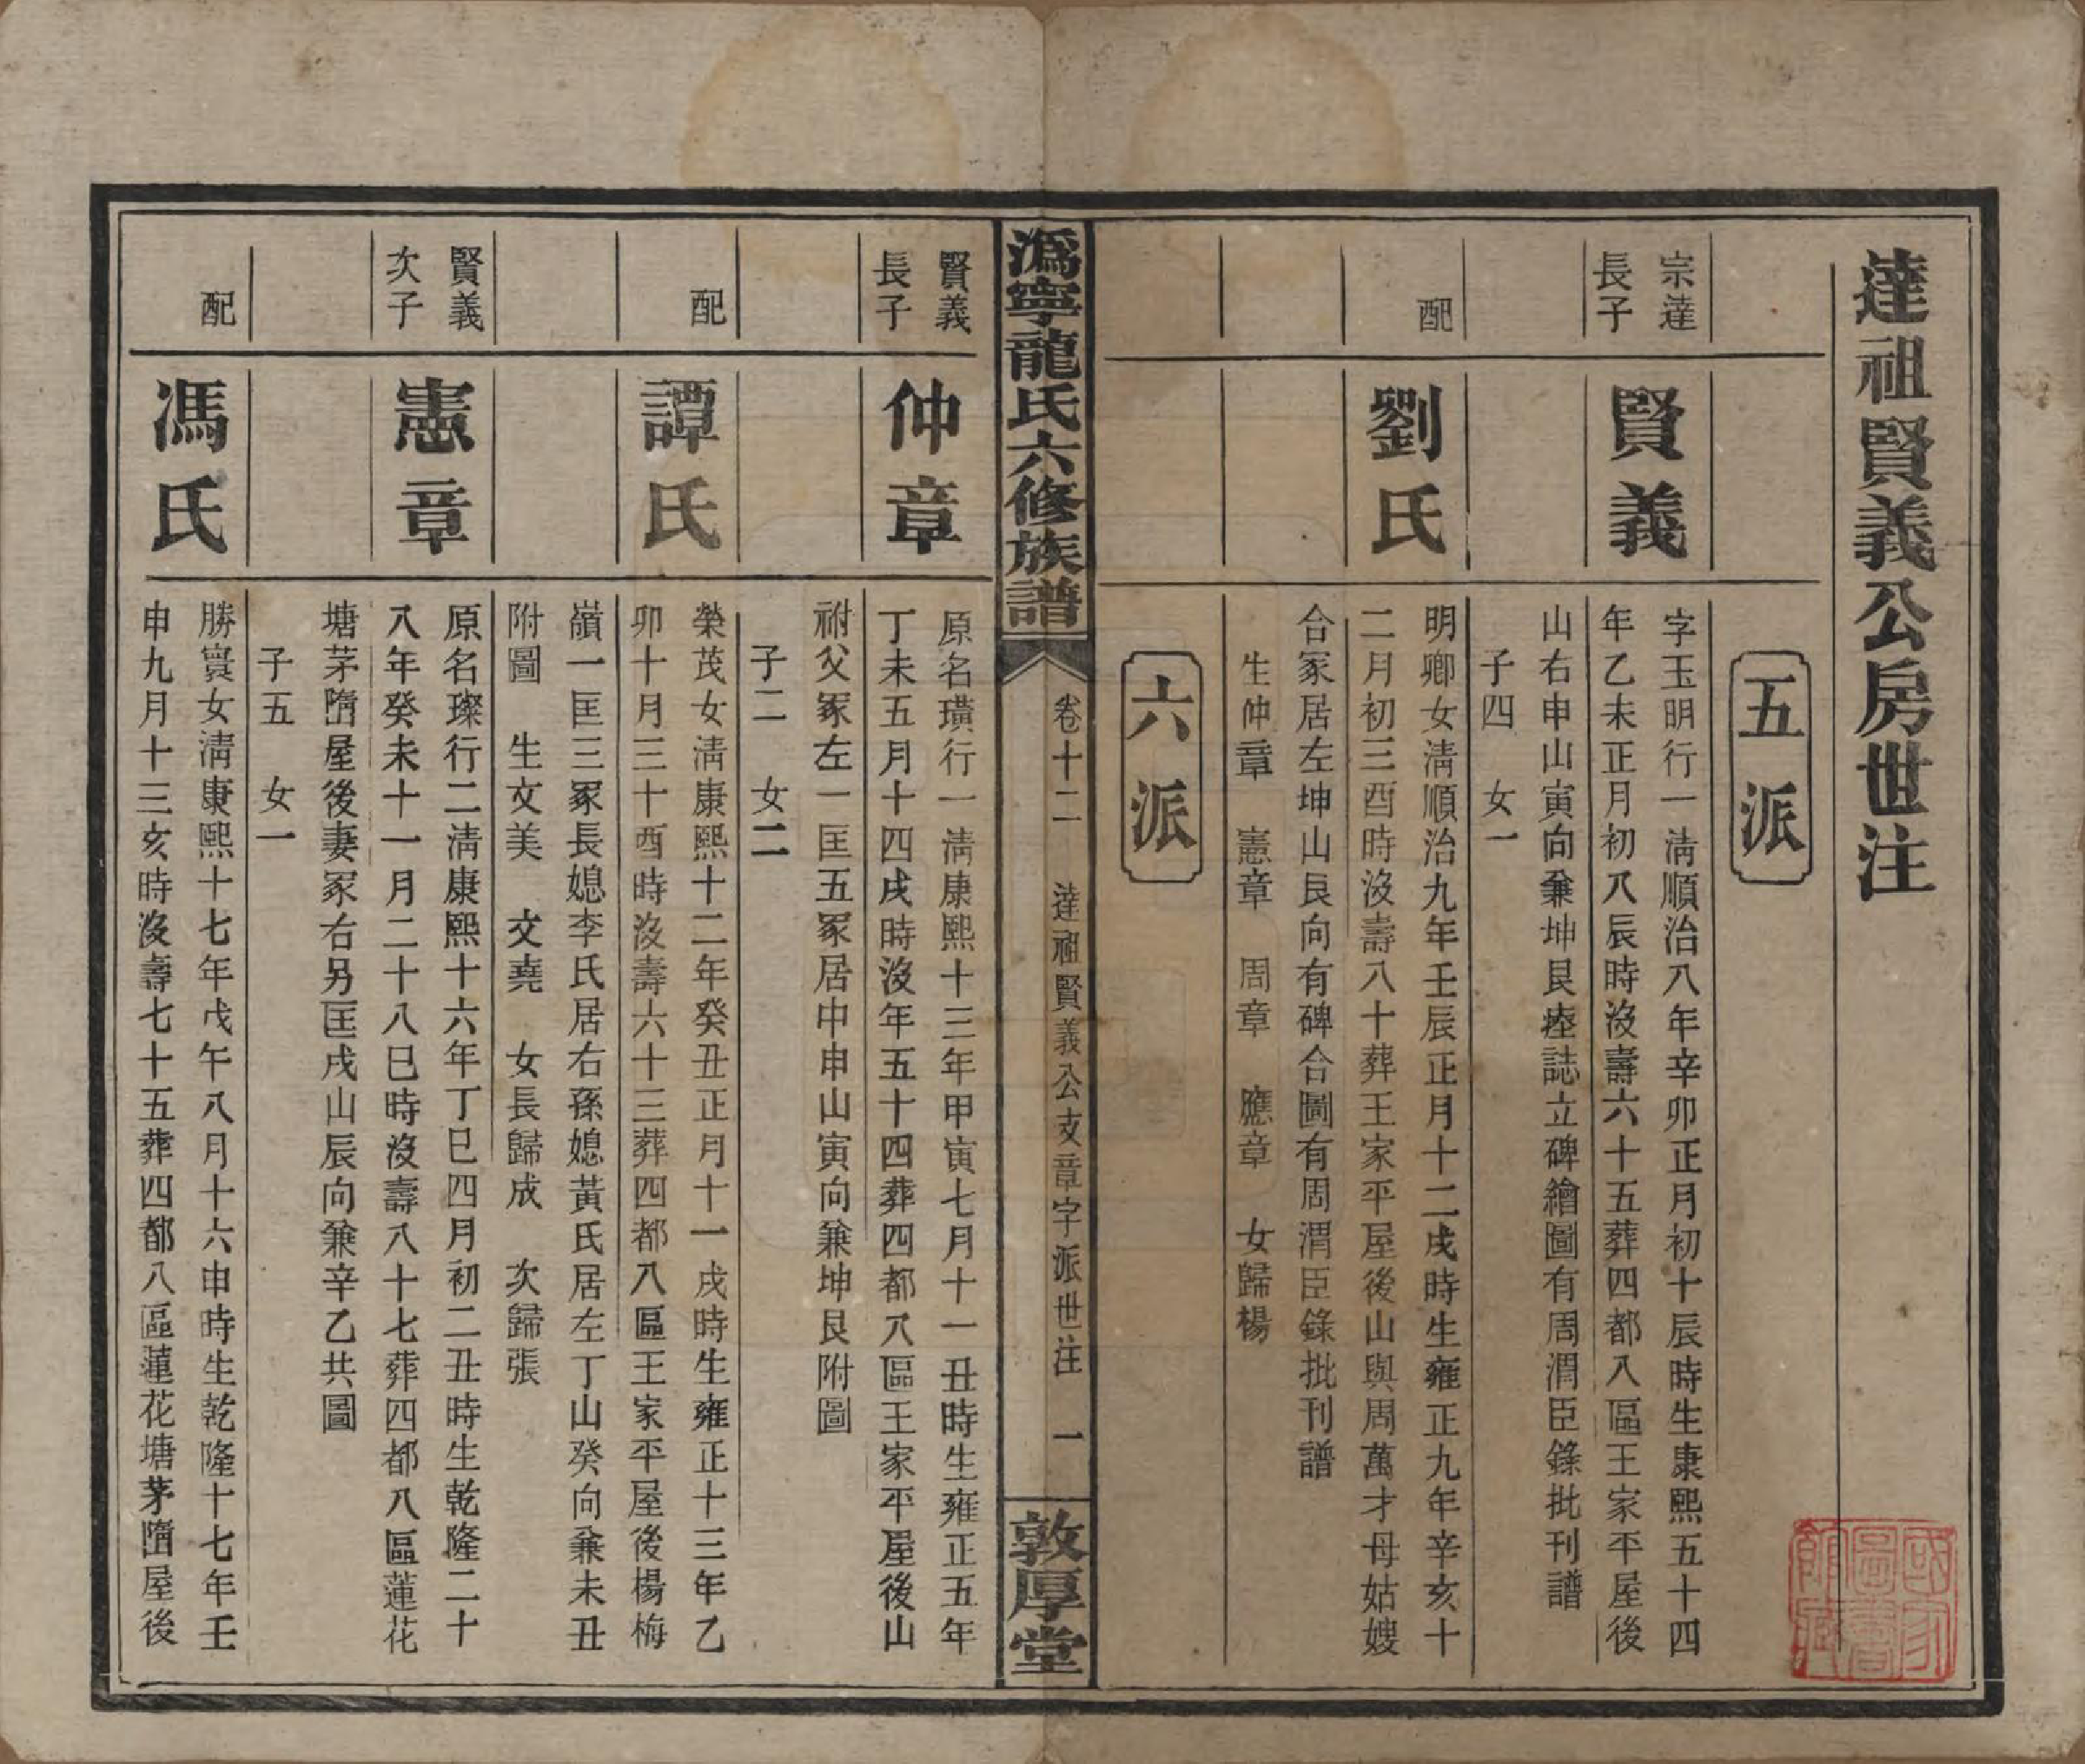 達祖賢義公房世注
五派
宗達
長子
賢義
字玉明行一清順治八年辛卯正月初十辰時生康熙五十四
年乙未正月初八辰時沒壽六十五葬四都八區王家平屋後
山右申山寅向兼坤艮塟誌立碑繪圖有周渭臣錄批刊譜
子四　女一
配
劉氏
明卿女清順治九年壬辰正月十二戌時生雍正九年辛亥十
二月初三酉時沒壽八十葬王家平屋後山與周萬才母姑嫂
合冢居左坤山艮向有碑合圖有周渭臣錄批刊譜
生仲章　憲章　周章　應章　女歸楊
六派
溈寧龍氏六修族譜
卷十二　達祖賢義公支章字派世注　一
敦厚堂
賢義
長子
仲章
原名璜行一清康熙十三年甲寅七月十一丑時生雍正五年
丁未五月十四戌時沒年五十四葬四都八區王家平屋後山
祔父冢左一匡五冢居中申山寅向兼坤艮附圖
子二　女二
配
譚氏
榮茂女清康熙十二年癸丑正月十一戌時生雍正十三年乙
卯十月三十酉時沒壽六十三葬四都八區王家平屋後楊梅
嶺一匡三冢長媳李氏居右孫媳黃氏居左丁山癸向兼未丑
附圖　生文美　文堯　女長歸成　次歸張
賢義
次子
憲章
原名璨行二清康熙十六年丁巳四月初二丑時生乾隆二十
八年癸未十一月二十八巳時沒壽八十七葬四都八區蓮花
塘茅墮屋後妻冢右另匡戌山辰向兼辛乙共圖
子五　女一
配
馮氏
勝寰女清康熙十七年戊午八月十六申時生乾隆十七年壬
申九月十三亥時沒壽七十五葬四都八區蓮花塘茅墮屋後
國家圖書館藏